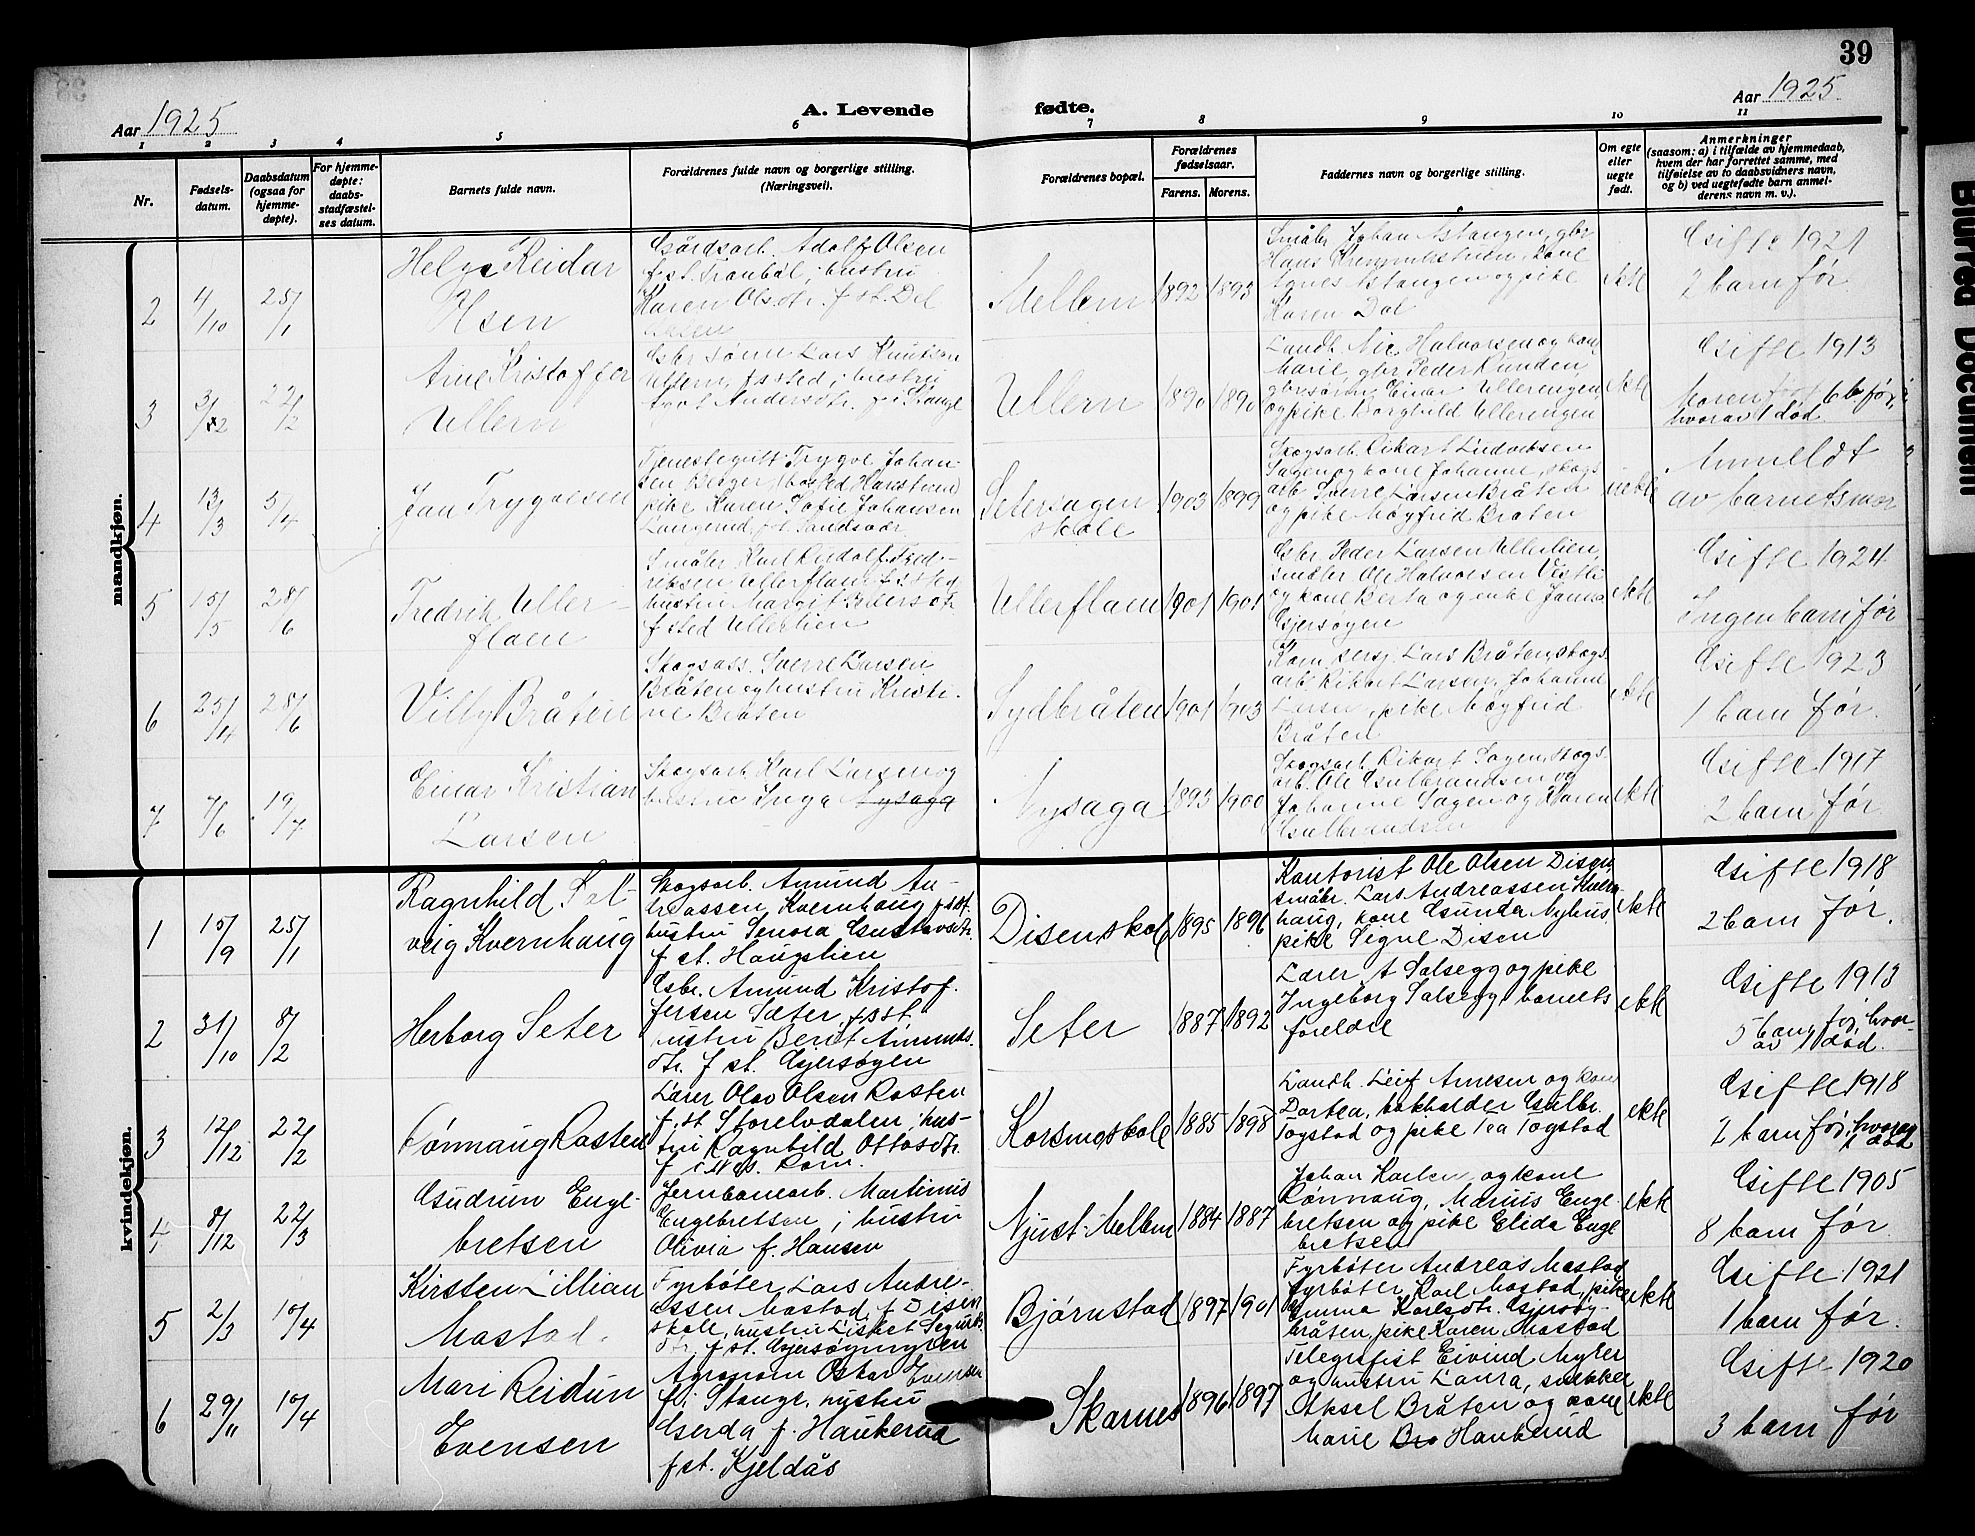 39
Aar 1925
A. Levende fødte.
Aar 1925
1 2 3 4 5 6 7 8 9 10 11
Nr.
Fødsels-
datum.
Daabsdatum
(ogsaa for
hjemme-
døpte).
For hjemme-
døpte:
daabs-
stadfæstel-
ses datum.
Barnets fulde navn.
Forældrenes fulde navn og borgerlige stilling.
(Næringsvei).
Forældrenes bopæl.
Forældrenes
fødselsaar.
Farens. Morens.
Faddernes navn og borgerlige stilling.
Om egte
eller
uegte
født.
Anmerkninger
(saasom: a) i tilfælde av hjemmedaab,
hvem der har forrettet samme, med
tilføielse av to daabsvidners navn,
og b) ved uegtefødte barn anmel-
derens navn m. v.).
mandkjøn.
2
4/10
25/1
Helge Reidar
Olsen
Gårdsarb. Adolf Olsen
f. st.
hustru
Karen Olsdtr. f. st. Dal
Mellem
1892
1893
Småbr. Johan Astangen, gbr.
Hans
kone
Agnes Astangen og pike
Karen Dal
ekte
Gifte 1921
2 barn før
3
3/12
22/2
Arne Kristoffer
Ullern
Gbr. sønn Lars Knutsen
Ullern, f. sted; hustru
Andersdtr. f. i Stange
Ullern
1890
1890
Landh. Nic. Halvorsen og kone
Marie, gbr. Peder Runden,
gbr. sønn Einar Ullerengen
og pike Borghild Ullerengen
ekte
Gifte 1913
6 b. før,
hvorav 1 død
4
13/3
5/4
Jan Trygvesen
Tjenestegutt Trygve Johan-
sen Berger
pike Karen Sofie Johansen
Langerud, f. st. Sandsvær
Setersagen
skole
1903
1899
Skogsarb. Rikart Ludvigsen
Sagen og kone Johanne, skogs
arb. Sverre Larsen Bråten
og pike Møyfrid Bråten
uekte
Anmeldt
av barnets mor
5
15/5
28/6
Fredrik Uller-
flaen
Småbr. Karl Rudolf Fred-
riksen Ullerflaen f. sted
hustru Margit Pedersdtr.
f. sted Ullerlien
Ullerflaen
1901
1901
Gbr. Peder Larsen Ullerlien,
småbr. Ole Halvorsen Vestli
og kone Berta og enke Janna
Gjersøyen
ekte
Gifte 1924
Ingen barn før
6
25/4
28/6
Villy Bråten
Skogsass. Sverre Larsen
Bråten og hustru Kristi-
ne Bråten
Sydbråten
1901
1903
Korn. sersj. Lars Bråten, skogs
arb. Rikart Larsen, Johanne
Larsen, pike Møyfrid
Bråten
ekte
Gifte 1923
1 barn før.
7
7/6
19/7
Einar Kristian
Larsen
Skogsarb. Karl Larsen og
hustru Inga Nysaga
Nysaga
1893
1900
Skogsarb. Rikart Sagen, skogs
arb. Ole Gulbrandsen og
Johanne Sagen og Karen
Gulbrandsen
ekte
Gifte 1917
2 barn før
kvindekjøn.
1
15/9
25/1
Ragnhild Sol-
veig Kvernhaug
Skogsarb. Amund An-
dreassen, Kvernhaug f. st.
hustru Senora Gustavsdtr.
f. st. Haugslien
Disen, skole
1895
1896
Kantorist Ole Olsen Disen,
småbr. Lars Andreassen Kvern-
haug, kone Gunda Nyhus,
pike Signe Disen
ekte
Gifte 1918
2 barn før.
2
31/10
8/2
Herborg Seter
Gbr. Amund Kristof-
fersen Sæter, f. st.
hustru Berit Amunds
dtr. f. st. Gjersøyen
Seter
1887
1892
Lærer A. Salsegg og pike
Ingeborg Salsegg, barnets
foreldre
ekte
Gifte 1913
5 barn før, hvor-
av 1 død.
3
12/12
22/2
Rønnaug Rasten
Lærer Olav Olsen Rasten
f. st. Storelvdalen; hus-
tru Ragnhild Ottosdtr.
f. i Nes, Rom.
Korsmo skole
1885
1898
Landh. Leif Arnesen og kone
Dortea, bokholder Gulbr.
Togstad og pike Tea Togstad
ekte
Gifte 1918
2 barn før, hvorav
1 død
4
8/12
22/3
Gudrun Enge-
bretsen
Jernbanearb. Martinus
Engebretsen; hustru
Olivia f. Hansen
Njust. Mellem
1884
1887
Johan Karlsen og kone
Rønnaug, Marius Enge-
bretsen og pike Elida Enge
bretsen
ekte
Gifte 1905
8 barn før.
5
2/3
10/4
Kirsten Lillian
Mastad.
Fyrbøter Lars Andre-
assen Mastad, f. Disen
skole, hustru Lisbet Sigurds
dtr. f. st. Gjersøymoen
Bjørnstad
1897
1901
Fyrbøter Andreas Mastad
fyrbøter Karl Mastad, pike
Emma Karlsdtr.
bråten, pike Karen Mastad
ekte
Gifte 1921
1 barn før.
6
29/11
10/4
Mari Reidun
Evensen
Agronom Oskar Evensen
f. i Stange, hustru
Gerda f. Haukerud
f. st. Kjeldås
Skarnes
1896
1897
Telegrafist Eivind Myrer
og hustru Laura, snekker
Aksel Bråten og kone
Marie Bra Haukerud
ekte
Gifte 1920
3 barn før
Blurred Document